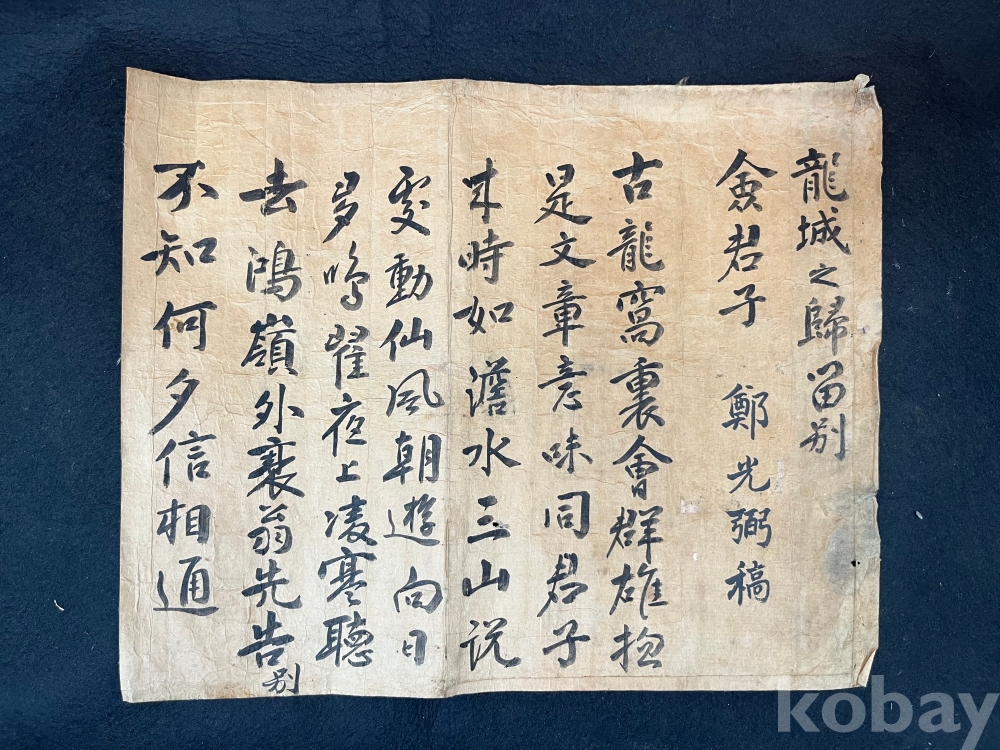 龍城之歸留別
僉君子 鄭光弼稿
古龍窩裏會群雄摠
是文章意味同君子
來時如濟水三山說
處動仙風朝遊向日
多鳴翟夜上凌寒聽
去鴻嶺外衰翁先告別
不知何夕信相通
kobay